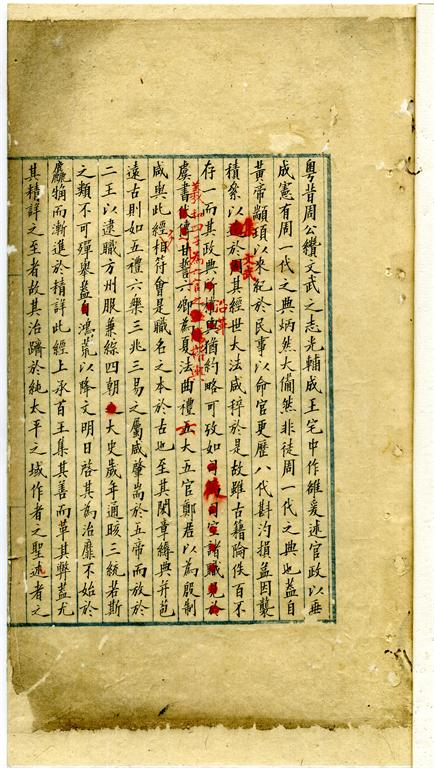 粵昔周公纘文武之志光輔成王宅中作雒爰述官政以垂
成憲有周一代之典炳然大備然非徒周一代之典也蓋自
黃帝顓頊以來紀於民事以命官更歷八代斟汋損益因襲
積絫以集於文武其經世大法咸稡於是故雖古籍淪佚百不
存一而其政典沿革猶約略可攷如司空諸職見於
虞書羲和四子為六官之權輿甘誓六卿為夏法曲禮六大五官鄭君以為殷制
咸與此經相符會是職名之本於古也至其閎章縟典并苞
遠古則如五禮六樂三兆三易之屬咸肇耑於五帝而放於
二王以逮職方州服兼綜四朝大史歲年通晐三統若斯
之類不可殫舉蓋自鴻荒以降文明日啓其為治靡不始於
麤觕而漸進於精詳此經上承百王集其善而革其弊蓋尤
其精詳之至者故其治躋於純太平之域作者之聖述者之